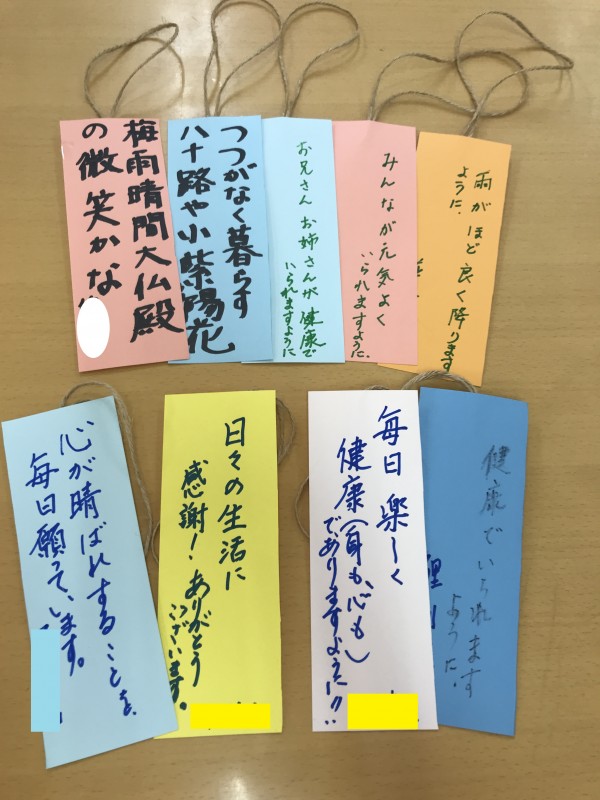 雨がほど良く降ります
ように、
みんなが元気よく
いられますように、
お兄さん お姉さんが 健康で
いられますように
つつがなく暮らす
八十路や小紫陽花
梅雨晴間大仏殿
の微笑かな
健康でいられます
ように、
毎日 楽しく
健康(身も、心も)
でありますように!!
日々の生活に
感謝! ありがとう
ございます。
心が晴ばれすることを、
毎日願っています。